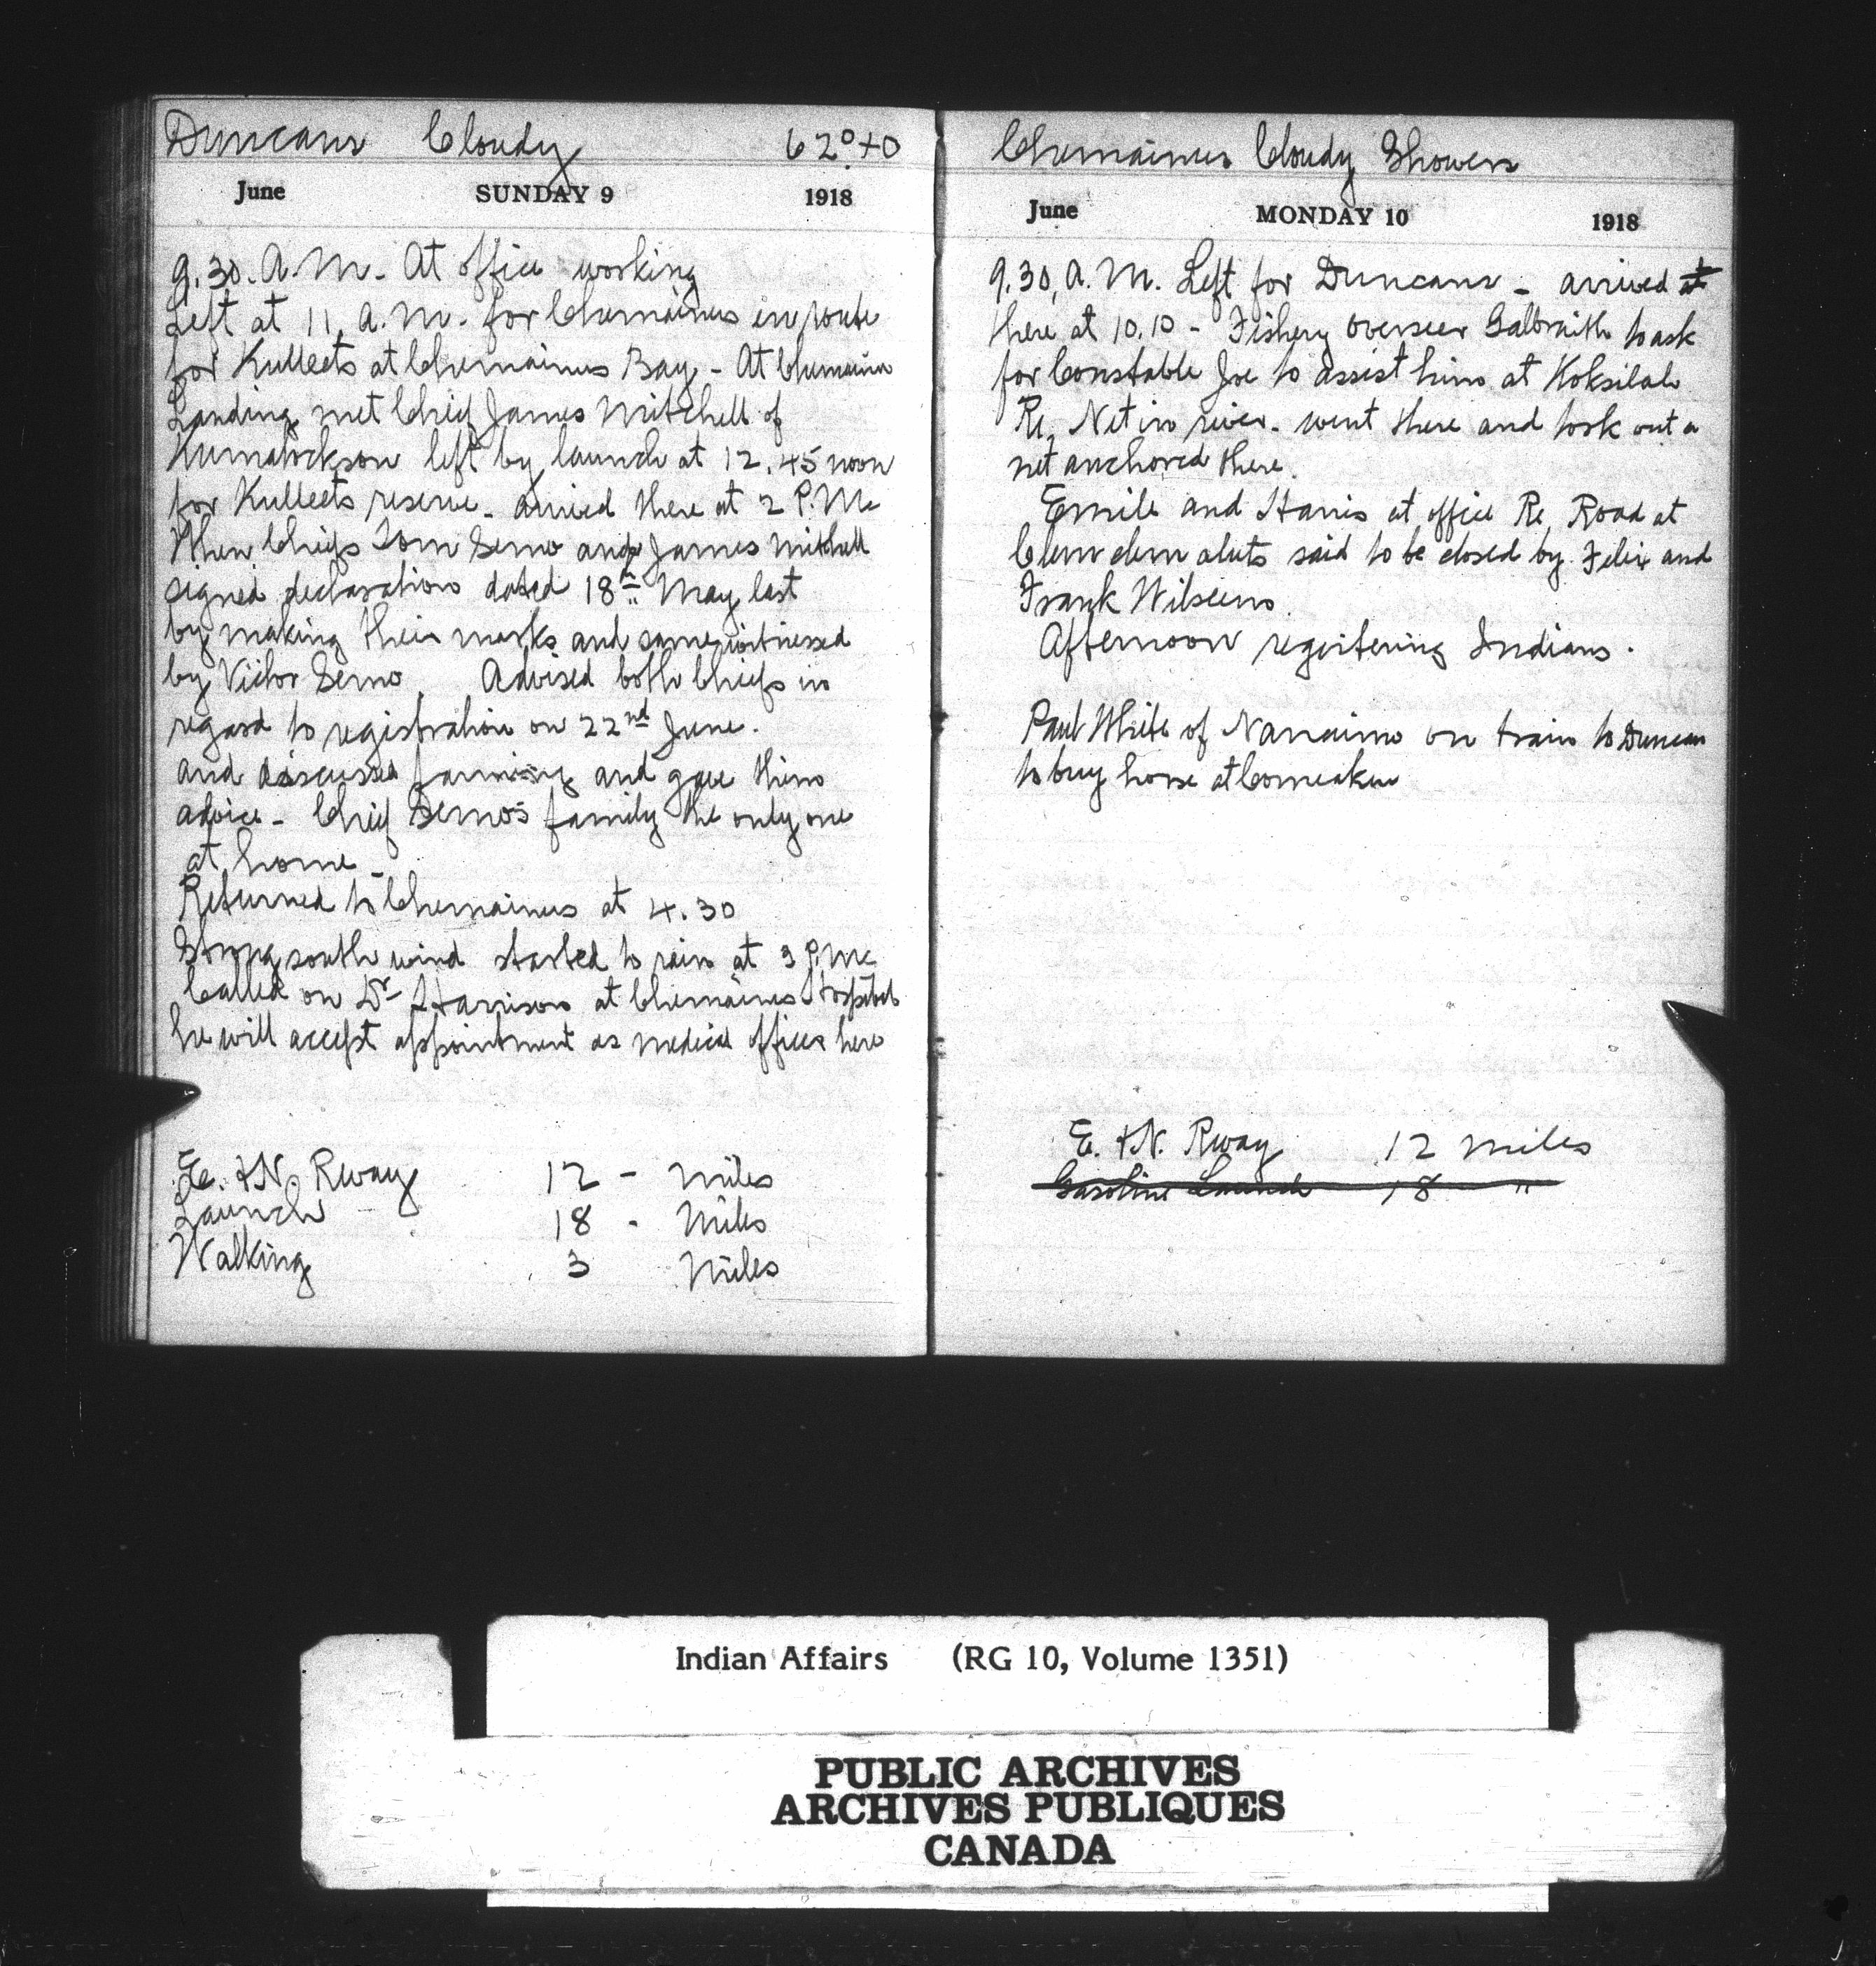 Duncans Cloudy 62°+0
June SUNDAY 9 1918
9.30. A.M. At office working
Left at 11, A.M. for Chemainus en route
for Kulleets at Chemainus Bay - At Chemainus
Landing met Chief James Mitchell of
left by launch at 12.45 noon
for Kulleets reserve - arrived there at 2 P.M.
When Chiefs Tom Semo and James Mitchell
signed declaration dated 18th May last
by making their marks and same witnessed
by Victor Semo. Advised both Chiefs in
regard to registration on 22nd June.
and discussed farming and gave them
advice - Chief Semo's family the only one
at home -
Returned to Chemainus at 4.30
Strong south wind started to rain at 3 P.M.
Called on Dr Harrison at Chemainus Hospital
he will accept appointment as medical officer here
E. & N. Rway 12 - Miles
Launch 18 - Miles
Walking 3 Miles
Chemainus Cloudy Showers
June MONDAY 10 1918
9.30, A.M. Left for Duncans - arrived at
there at 10.10 - Fishery Overseer Galbraith to ask
for Constable Joe to assist him at Koksilah
Re, Net in river - went there and took out a
net anchored there.
Emile and Harris at office Re, Road at
Clem clem aluts said to be closed by Felix and
Frank
Afternoon registering Indians.
Paul White of Nanaimo on train to Duncan
to buy horse at Comeaken
E. & N. Rway 12 miles
Gasoline Launch 18 "
Indian Affairs (RG 10, Volume 1351)
PUBLIC ARCHIVES
ARCHIVES PUBLIQUES
CANADA